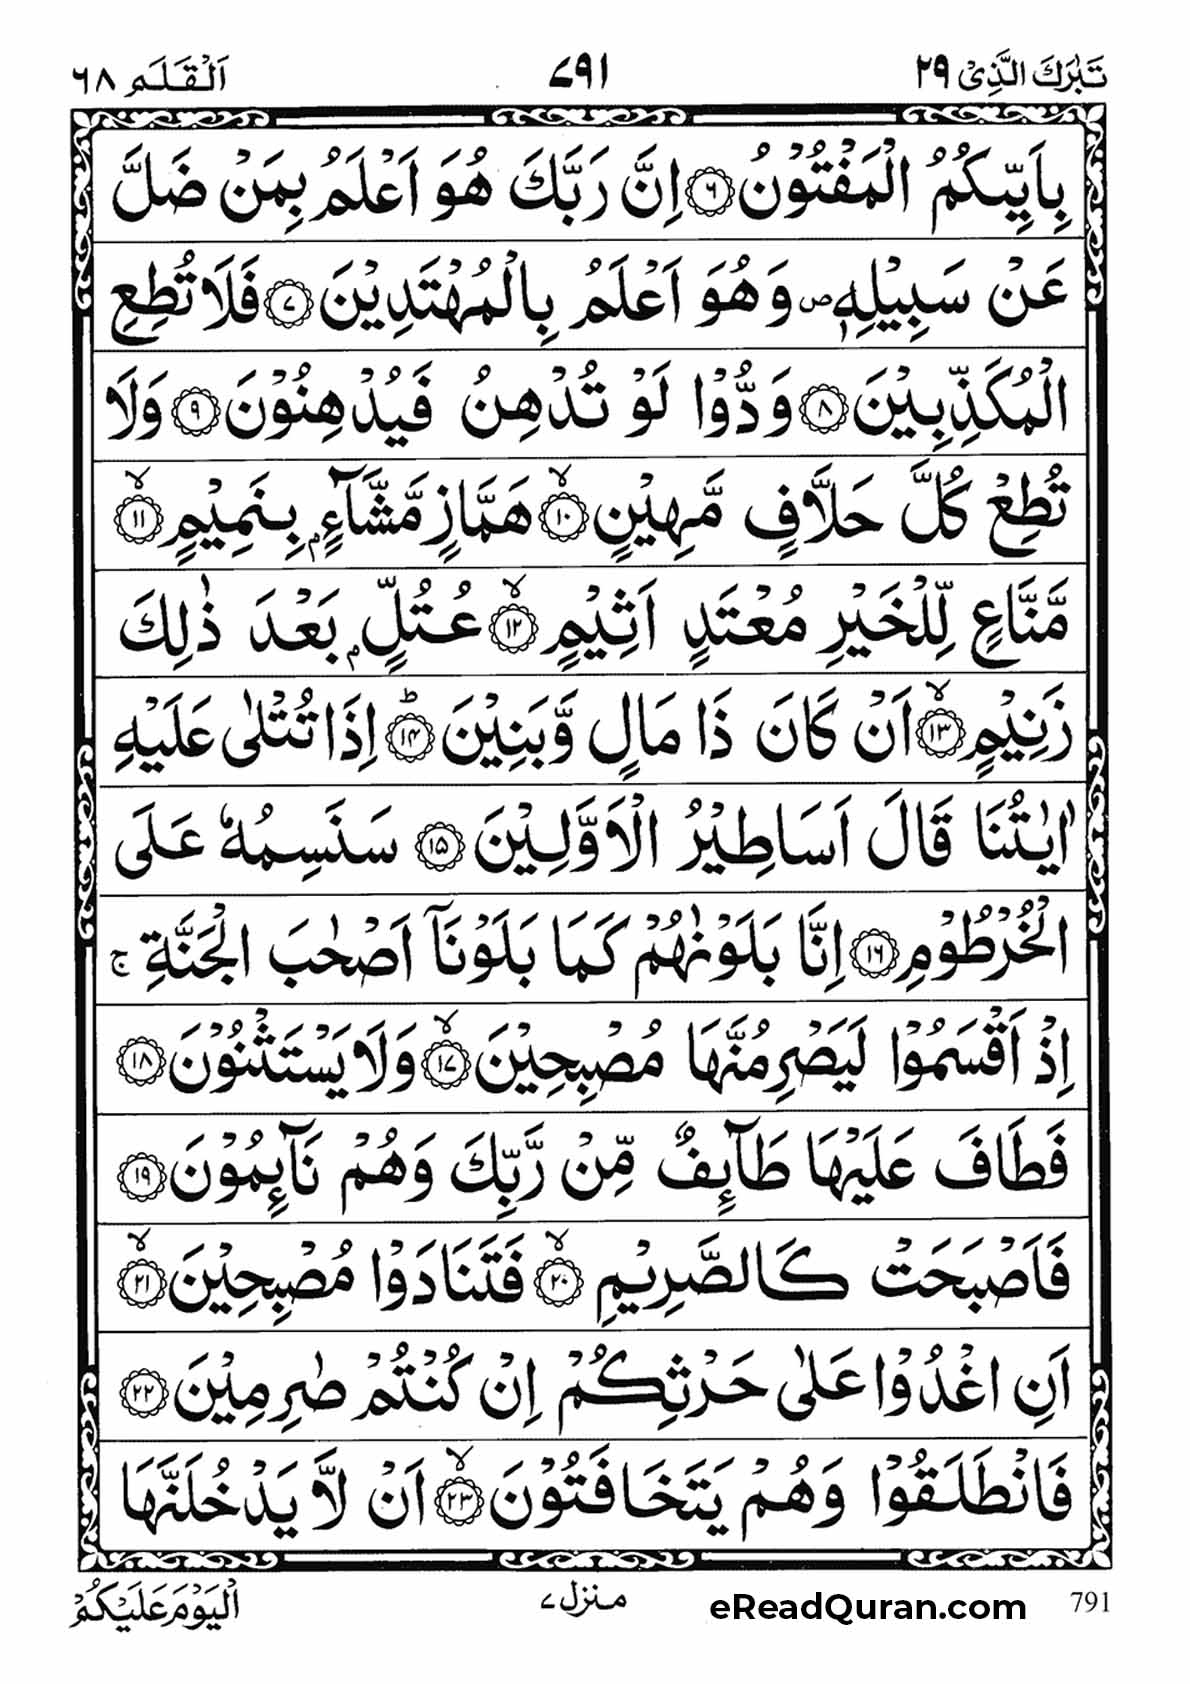 تَبٰرَكَ الَّذِیْ ٢٩
٧٩١
اَلْقَلَم ٦٨
بِاَىيِّكُمُ الْمَفْتُوْنُ ٦ اِنَّ رَبَّكَ هُوَ اَعْلَمُ بِمَنْ ضَلَّ
عَنْ سَبِيْلِهٖ ۪ وَهُوَ اَعْلَمُ بِالْمُهْتَدِيْنَ ٧ فَلَا تُطِعِ
الْمُكَذِّبِيْنَ ٨ وَدُّوْا لَوْ تُدْهِنُ فَيُدْهِنُوْنَ ٩ وَلَا
تُطِعْ كُلَّ حَلَّافٍ مَّهِيْنٍ ۙ١٠ هَمَّازٍ مَّشَّآءٍۭ بِنَمِيْمٍ ۙ١١
مَّنَّاعٍ لِّلْخَيْرِ مُعْتَدٍ اَثِيْمٍ ۙ١٢ عُتُلٍّۭ بَعْدَ ذٰلِكَ
زَنِيْمٍ ۙ١٣ اَنْ كَانَ ذَا مَالٍ وَّبَنِيْنَ ؕ١٤ اِذَا تُتْلٰى عَلَيْهِ
اٰيٰتُنَا قَالَ اَسَاطِيْرُ الْاَوَّلِيْنَ ١٥ سَنَسِمُهٗ عَلَى
الْخُرْطُوْمِ ١٦ اِنَّا بَلَوْنٰهُمْ كَمَا بَلَوْنَآ اَصْحٰبَ الْجَنَّةِ ۚ
اِذْ اَقْسَمُوْا لَيَصْرِمُنَّهَا مُصْبِحِيْنَ ۙ١٧ وَلَا يَسْتَثْنُوْنَ ١٨
فَطَافَ عَلَيْهَا طَآئِفٌ مِّنْ رَّبِّكَ وَهُمْ نَآئِمُوْنَ ١٩
فَاَصْبَحَتْ كَالصَّرِيْمِ ۙ٢٠ فَتَنَادَوْا مُصْبِحِيْنَ ۙ٢١
اَنِ اغْدُوْا عَلٰى حَرْثِكُمْ اِنْ كُنْتُمْ صٰرِمِيْنَ ٢٢
فَانْطَلَقُوْا وَهُمْ يَتَخَافَتُوْنَ ۙ٢٣ اَنْ لَّا يَدْخُلَنَّهَا
791
eReadQuran.com
منزل ٧
الْيَوْمَ عَلَيْكُمْ